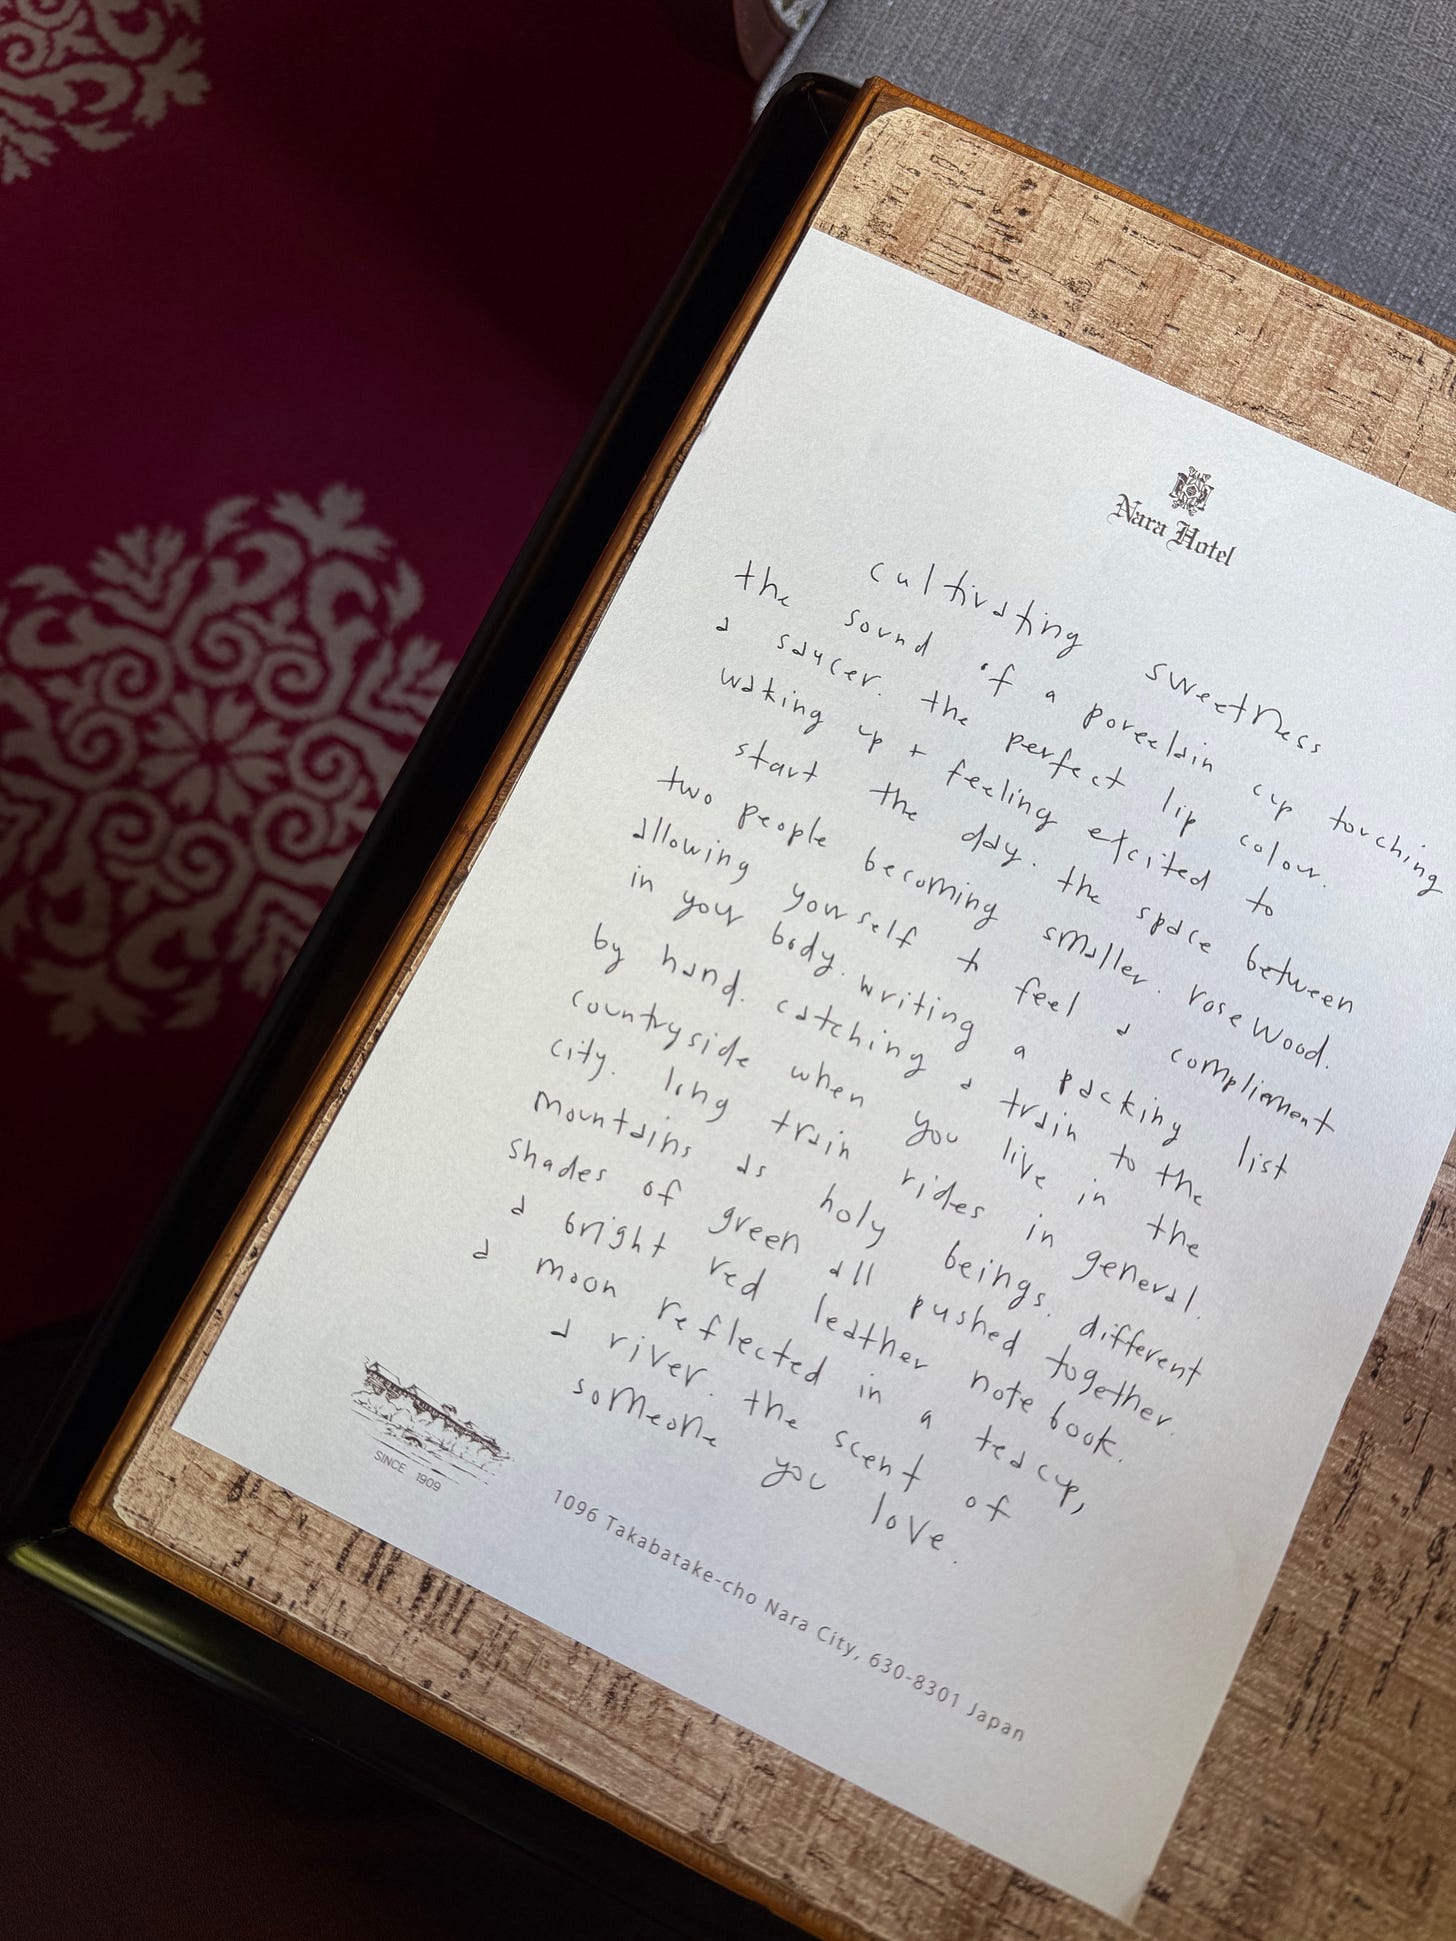 Nara Hotel
cultivating sweetness
the sound of a porcelain cup touching
a saucer. the perfect lip colour.
waking up + feeling excited to
start the day. the space between
two people becoming smaller. rosewood.
allowing yourself to feel a compliment
in your body. writing a packing list
by hand. catching a train to the
countryside when you live in the
city. long train rides in general.
mountains as holy beings. different
shades of green all pushed together.
a bright red leather notebook.
a moon reflected in a teacup,
a river. the scent of
someone you love.
SINCE 1909
1096 Takabatake-cho Nara City, 630-8301 Japan